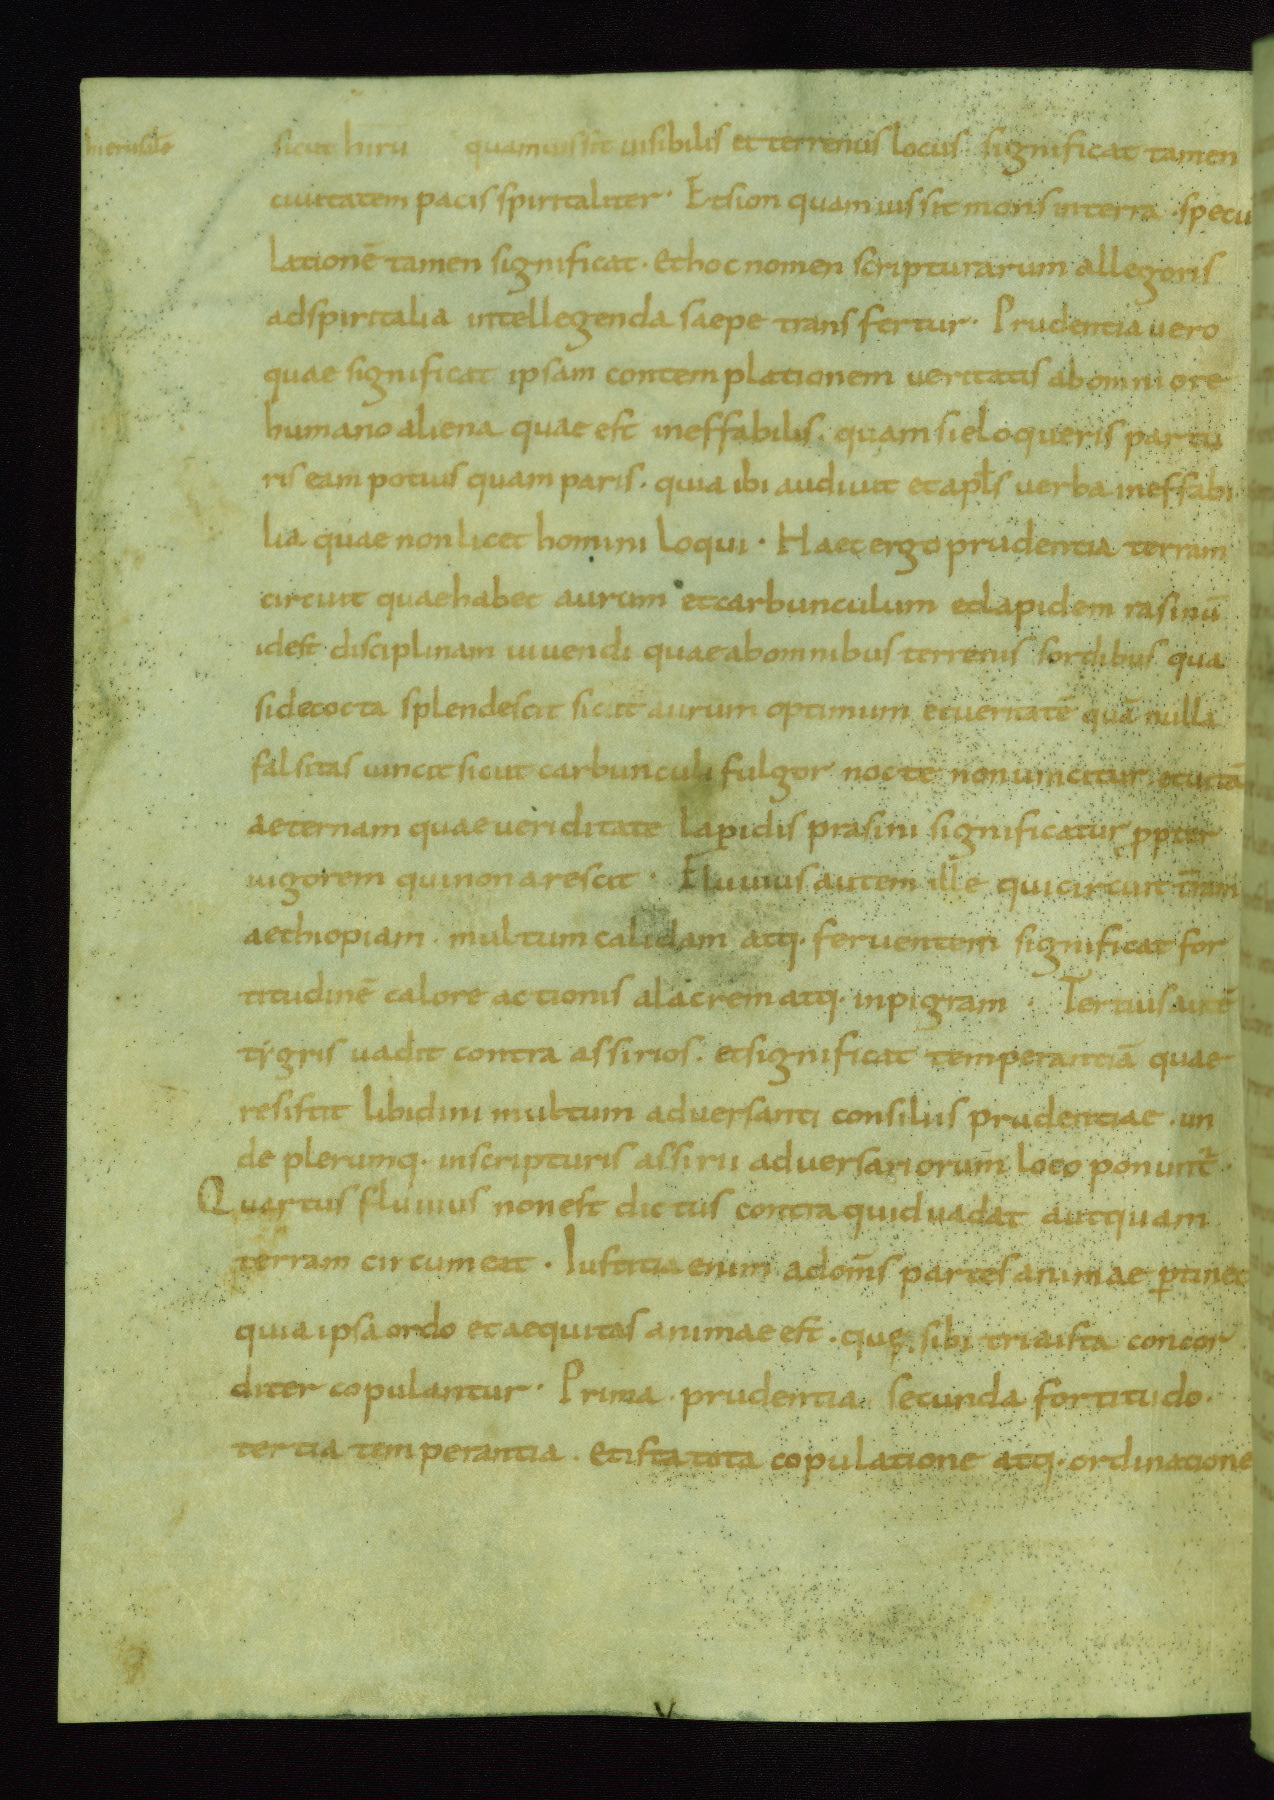 hierusalē
sicut hirū quamuis sit uisibilis et terrenus locus significat tamen
ciuitatem pacis spiritaliter · Et sion quamuis sit mons in terra · specu
lationē tamen significat · et hoc nomen scripturarum allegoris
ad spiritalia intellegenda saepe transfertur · Prudentia uero
quae significat ipsam contemplationem ueritatis ab omni ore
humano aliena quae est ineffabilis · quam si eloqueris partu
ris eam potius quam paris · quia ibi audiuit et apłs uerba ineffabi
lia quae non licet homini loqui · Haec ergo prudentia terram
circuit quae habet aurum et carbunculum et lapidem rasinū
id est disciplinam uiuendi quae ab omnibus terrenis sordibus qua
si decocta splendescit sicut aurum optimum et ueritatē quā nulla
falsitas uincit sicut carbunculi fulgor nocte non uincitur et uitā
aeternam quae ueriditate lapidis prasini significatur ꝓpter
uigorem qui non arescit · Fluuius autem ille qui circuit t̄ram
aethiopiam · multum calidam atq· feruentem significat for
titudinē calore actionis alacrem atq· inpigram · Tertius autē
tygris uadit contra assirios · et significat temperantiā quae
resistit libidini multum aduersanti consiliis prudentiae · un
de plerumq· in scripturis assirii aduersariorum loco ponunt̄ ·
Quartus fluuius non est dictus contra quid uadat aut quam
terram circumeat · Iustitia enim ad om̄s partes animae ꝑtinet
quia ipsa ordo et aequitas animae est · quę sibi tria ista concor
diter copulantur · Prima · prudentia secunda fortitudo ·
tertia temperantia · et ista tota copulatione atq· ordinatione